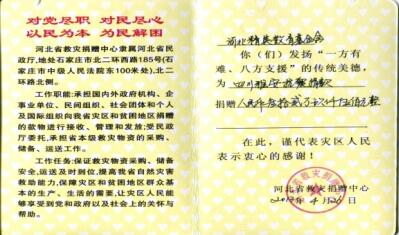 对党尽职 对民尽心
以民为本 为民解困
河北省救灾捐赠中心隶属河北省民
政厅,地处石家庄市北二环西路185号(石
家庄市中级人民法院东100米处),北二
环路北侧。
工作职能:承担国内外政府机构、企
事业单位、民间组织、社会团体和个人
及国际组织向我省灾区和贫困地区捐赠
的款物进行接收、管理和发放;受民政
厅委托,承担省本级救灾物资的采购、
储备、运送工作。
工作任务:保证救灾物资采购、储备
安全,运送及时到位,提高我省自然灾害
救助能力,保障灾区和贫困地区群众基
本的生产、生活的需要,让灾区人民能
够享受到党和政府以及社会上的关怀与
帮助。
河北精英教育基金会
你(们)发扬“一方有
难、八方支援”的传统美德,
为四川雅安抗震救灾
捐赠人民币
在此,谨代表灾区人民
表示衷心的感谢!
河北省救灾捐赠中心
2013年4月26日